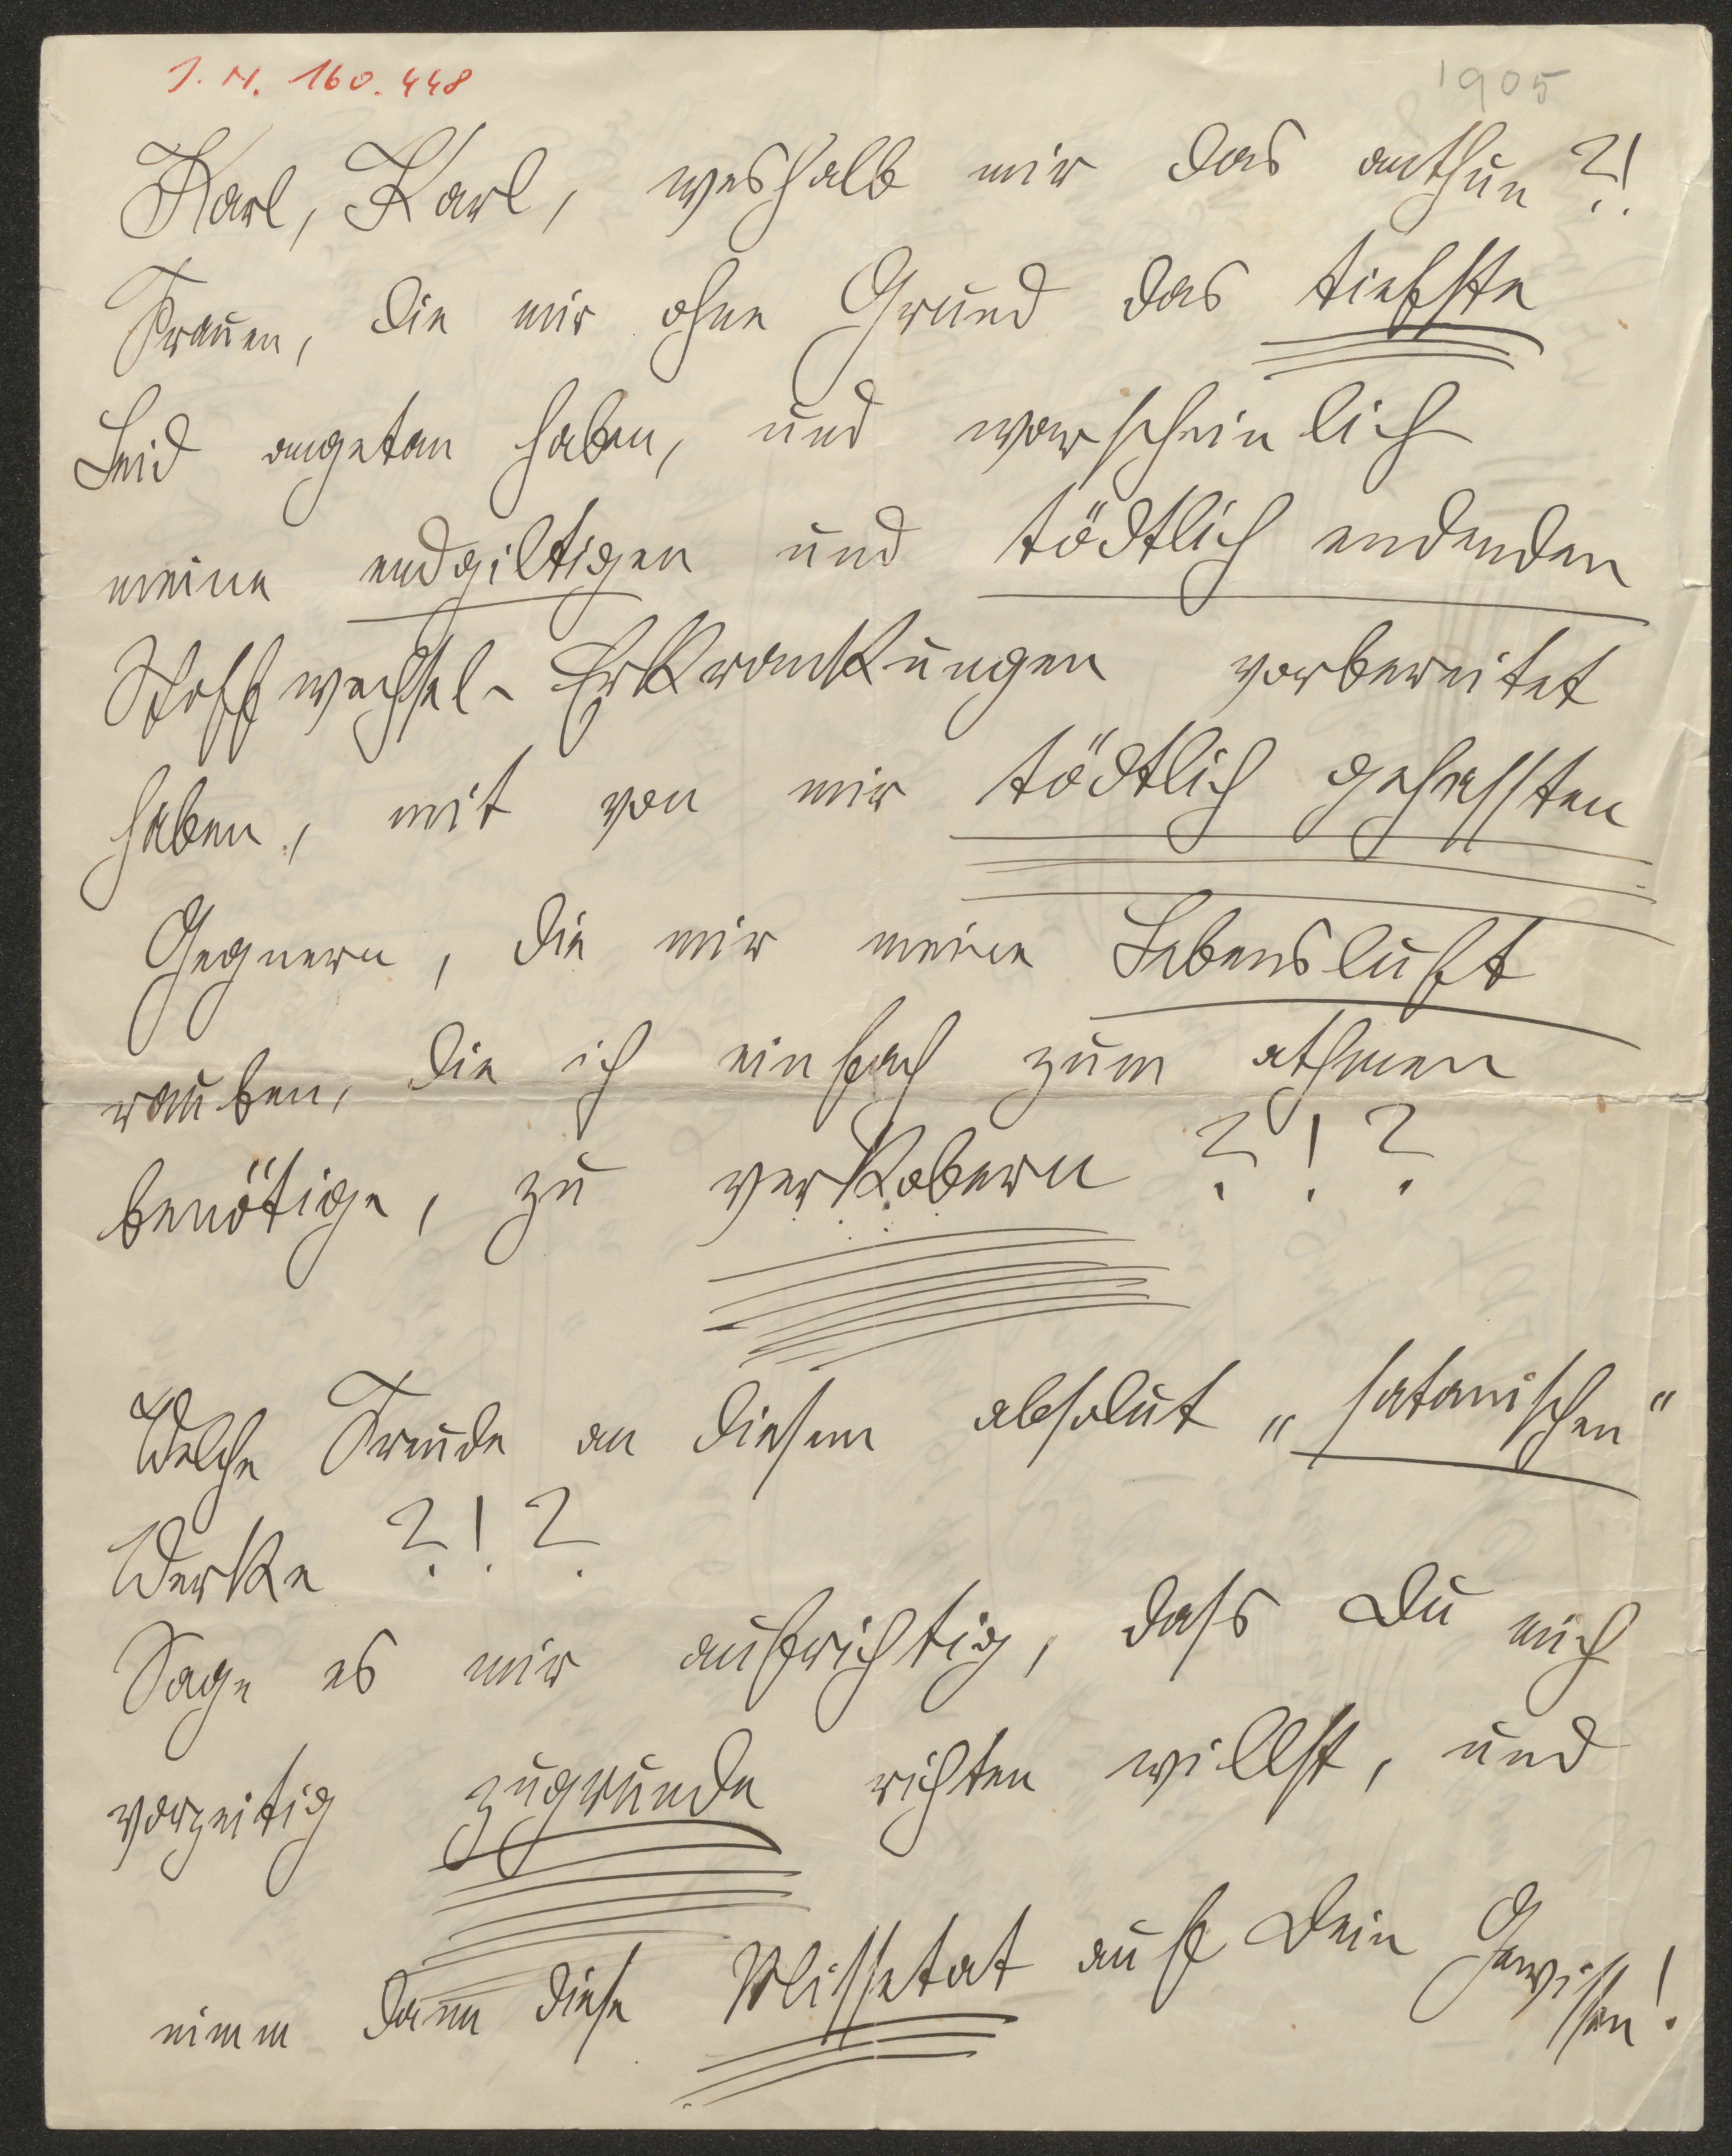 J. N. 160.448
1905
Karl, Karl, weshalb mir das anthun?!
Frauen, die mir ohne Grund das tiefste
Leid angetan haben, und warscheinlich
meine endgiltigen und tödtlich endenden
Stoffwechsel-Erkrankungen vorbereitet
haben, mit von mir tödtlich gehassten
Gegnern, die mir meine Lebensluft
rauben, die ich einfach zum athmen
benötige, zu verkobern ?!?
Welche Freude an diesem absolut „satanischen“
Werke ?!?
Sage es mir aufrichtig, dass Du mich
vorzeitig zugrunde richten willst, und
nimm dann diese Missetat auf Dein Gewissen!